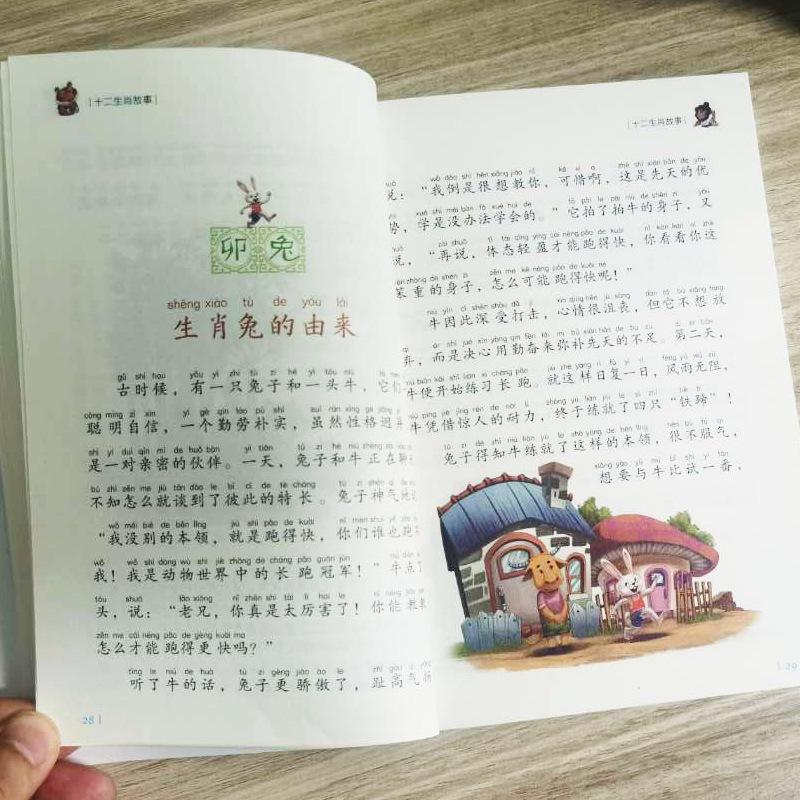 十二生肖故事
卯兔
shēng xiào tù de yóu lái
生肖兔的由来
gǔ shí hou yǒu yì zhī tù zi hé yì tóu niú tā
古时候，有一只兔子和一头牛，它们
cōng míng zì xìn yí gè qín láo pǔ shí suī rán xìng gé
聪明自信，一个勤劳朴实，虽然性格迥异
shì yí duì qīn mì de huǒ bàn yì tiān tù zi hé niú zhèng zài
是一对亲密的伙伴。一天，兔子和牛正在聊
bù zhī zěn me jiù tán dào le bǐ cǐ de tè cháng tù zi shén qì
不知怎么就谈到了彼此的特长。兔子神气地说
wǒ méi bié de běn lǐng jiù shì pǎo de kuài nǐ men shuí yě
“我没别的本领，就是跑得快，你们谁也跑
wǒ wǒ shì dòng wù shì jiè zhōng de cháng pǎo guàn jūn niú diǎn
我！我是动物世界中的长跑冠军！”牛点了
tóu shuō lǎo xiōng nǐ zhēn shì tài lì hai le nǐ néng jiāo
头，说：“老兄，你真是太厉害了！你能教教
zěn me cái néng pǎo de gèng kuài ma
怎么才能跑得更快吗？”
tīng le niú de huà tù zi gèng jiāo ào le zhǐ gāo qì
听了牛的话，兔子更骄傲了，趾高气扬
28
十二生肖故事
shuō wǒ dào shì hěn xiǎng jiāo nǐ kě xī a zhè shì xiān tiān de yōu
说：“我倒是很想教你，可惜啊，这是先天的优
shì xué shì méi bàn fǎ xué huì de tā pāi le pāi niú de shēn zi yòu
势，学是没办法学会的。”它拍了拍牛的身子，又
shuō zài shuō tǐ tài qīng yíng cái néng pǎo de kuài nǐ kàn kan nǐ zhè
说，“再说，体态轻盈才能跑得快，你看看你这
bèn zhòng de shēn zi zěn me kě néng pǎo de kuài ne
笨重的身子，怎么可能跑得快呢！”
niú yīn cǐ shēn shòu dǎ jī xīn qíng hěn jǔ sàng dàn tā bù xiǎng fàng
牛因此深受打击，心情很沮丧，但它不想放
qì ér shì jué xīn yòng qín fèn lái mí bǔ xiān tiān de bù zú dì èr tiān
弃，而是决心用勤奋来弥补先天的不足。第二天，
niú biàn kāi shǐ liàn xí cháng pǎo jiù zhè yàng rì fù yí rì fēng yǔ wú zǔ
牛便开始练习长跑。就这样日复一日，风雨无阻，
niú píng jiè jīng rén de nài lì zhōng yú liàn jiù le sì zhī tiě tí
牛凭借惊人的耐力，终于练就了四只“铁蹄”！
tù zi dé zhī niú liàn jiù le zhè yàng de běn lǐng hěn bù fú qì
兔子得知牛练就了这样的本领，很不服气，
xiǎng yào yǔ niú bǐ shì yì fān
想要与牛比试一番，
29